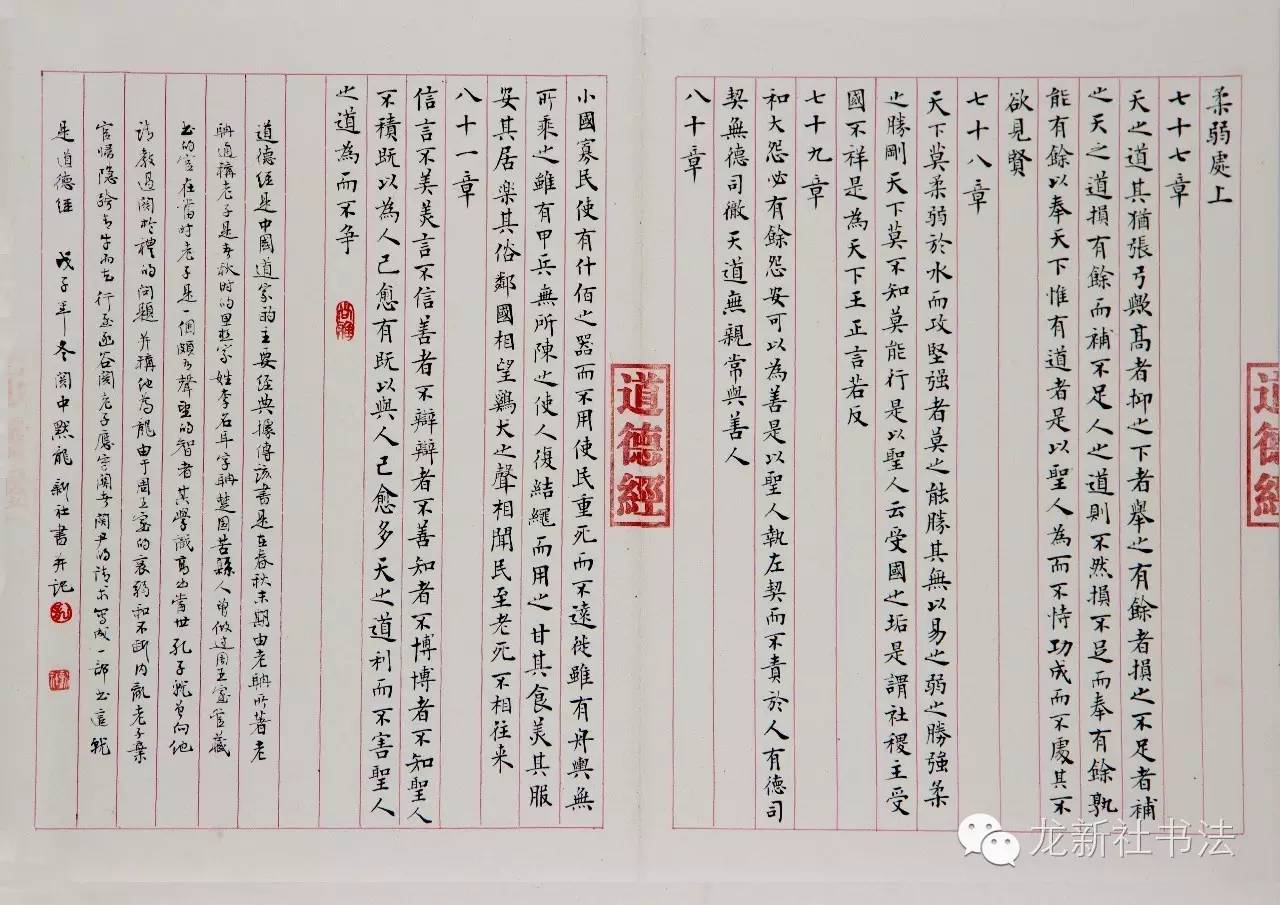 柔弱處上
七十七章
天之道其猶張弓歟高者抑之下者舉之有餘者損之不足者補
之天之道損有餘而補不足人之道則不然損不足而奉有餘孰
能有餘以奉天下惟有道者是以聖人為而不恃功成而不處其不
欲見賢
七十八章
天下莫柔弱於水而攻堅强者莫之能勝其無以易之弱之勝强柔
之勝剛天下莫不知莫能行是以聖人云受國之垢是謂社稷主受
國不祥是為天下王正言若反
七十九章
和大怨必有餘怨安可以為善是以聖人執左契而不責於人有德司
契無德司徹天道無親常與善人
八十章
道德經
小國寡民使有什佰之器而不用使民重死而不遠徙雖有舟輿無
所乘之雖有甲兵無所陳之使人復結繩而用之甘其食美其服
安其居樂其俗鄰國相望鷄犬之聲相聞民至老死不相往来
八十一章
信言不美美言不信善者不辯辯者不善知者不博博者不知聖人
不積既以為人己愈有既以與人己愈多天之道利而不害聖人
之道為而不争
道德经是中國道家的主要经典據傳该書是在春秋末期由老聃所著老
聃通稱老子是春秋时的思想家姓李名耳字聃楚国苦縣人曾做过周王室管藏
书的官在當时老子是一個颇有聲望的智者其学識高出當世孔子就曾向他
请教過關於禮的问题并稱他為龍由于周王室的衰弱和不断内亂老子棄
官归隐骑青牛而去行至函谷関老子應守關令関尹的请求写成一部书這就
是道德经 戊子年冬関中默龍新社書并记
龙新社书法